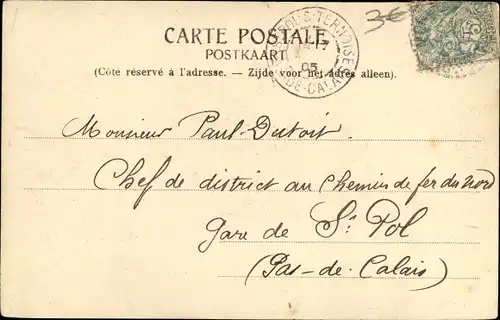 CARTE POSTALE
POSTKAART
(Côte réservé à l'adresse. — Zijde voor het adres alleen).
3€
TERNOISE
17
05
DE-CALAIS
Monsieur Paul Dutoit
Chef de district au Chemin de fer du Nord
Gare de St. Pol
(Pas-de-Calais)